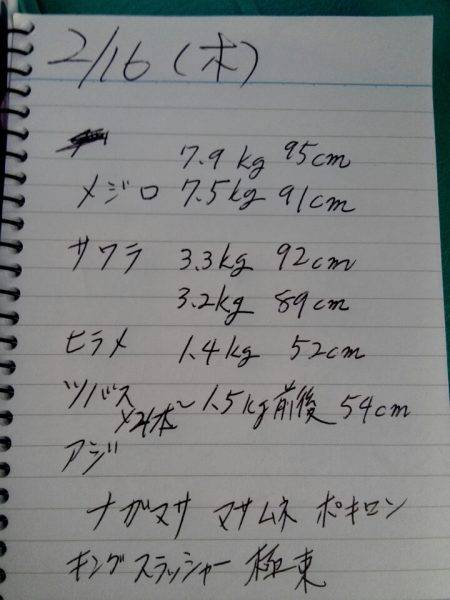 2/16 (木)
7.9kg 95cm
メジロ 7.5kg 91cm
サワラ 3.3kg 92cm
3.2kg 89cm
ヒラメ 1.4kg 52cm
ツバス ～1.5kg前後 54cm
アジ
ナガマサ マサムネ ポキロン
キングスラッシャー 極東